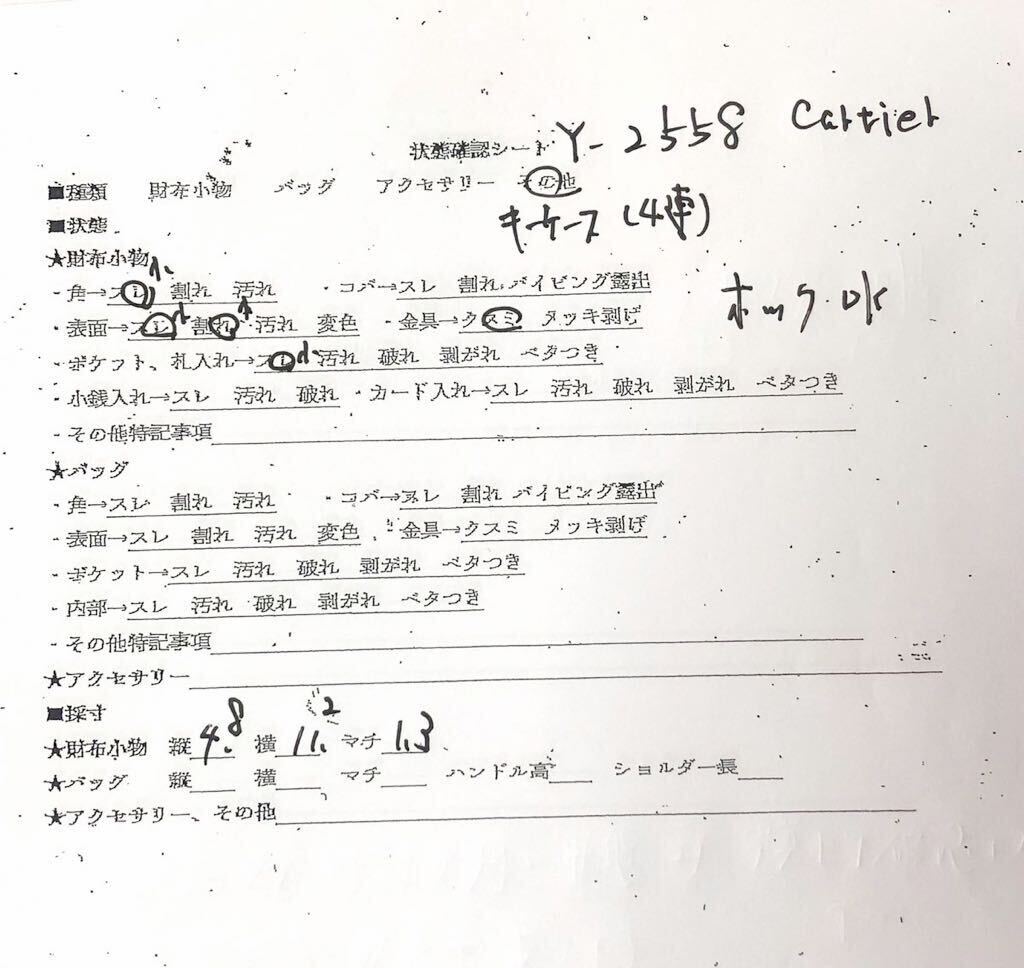 状態確認シート Y-2558 Cartier
■種類 財布小物 バッグ アクセサリー その他
キーケース (4連)
■状態
★財布小物
・角→スレ 割れ 汚れ ・コバ→スレ 割れ パイピング露出
ホック.OK
・表面→スレ 割れ 汚れ 変色 ・金具→クスミ メッキ剥げ
・ポケット、札入れ→スレ 汚れ 破れ 剥がれ ベタつき
・小銭入れ→スレ 汚れ 破れ ・カード入れ→スレ 汚れ 破れ 剥がれ ベタつき
・その他特記事項
★バッグ
・角→スレ 割れ 汚れ ・コバ→スレ 割れ パイピング露出
・表面→スレ 割れ 汚れ 変色 ・金具→クスミ メッキ剥げ
・ポケット→スレ 汚れ 破れ 剥がれ ベタつき
・内部→スレ 汚れ 破れ 剥がれ ベタつき
・その他特記事項
★アクセサリー
■採寸
★財布小物 縦4.8 横11.2 マチ1.3
★バッグ 縦 横 マチ ハンドル高 ショルダー長
★アクセサリー、その他